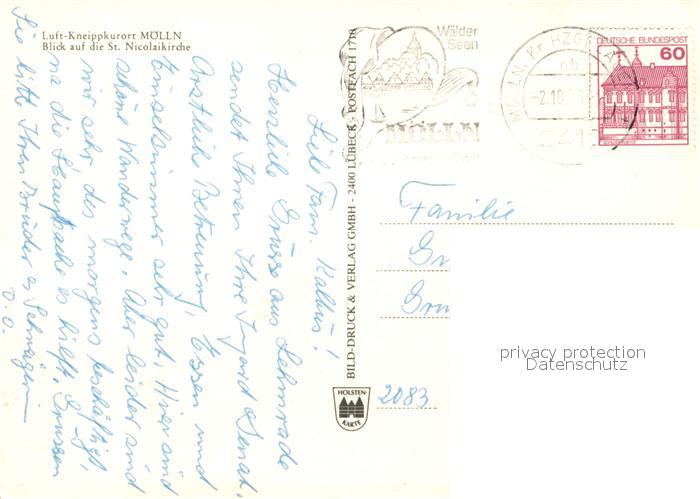 Luft-Kneippkurort MÖLLN
Blick auf die St. Nicolaikirche
Liebe Fam. Kallus!
Herzliche Grüsse aus Lehmrade
sendet Ihnen Ihre
Ärztliche Betreuung, Essen und
Einzelzimmer sehr gut. Hier sind
schöne Wanderwege. Aber leider sind
wir sehr des morgens beschäftigt,
na die Hauptsache es hilft. Grüssen
Sie bitte Ihren Bruder u. Schwägerin
BILD-DRUCK & VERLAG GMBH - 2400 LÜBECK - POSTFACH 1710
HOLSTEN-
KARTE
Wälder
Seen
MÖLLN
MÖLLN, Kr HZGT
nb
-2.10.
241
DEUTSCHE BUNDESPOST
60
Familie
Gr
Gru
2083
privacy protection
Datenschutz